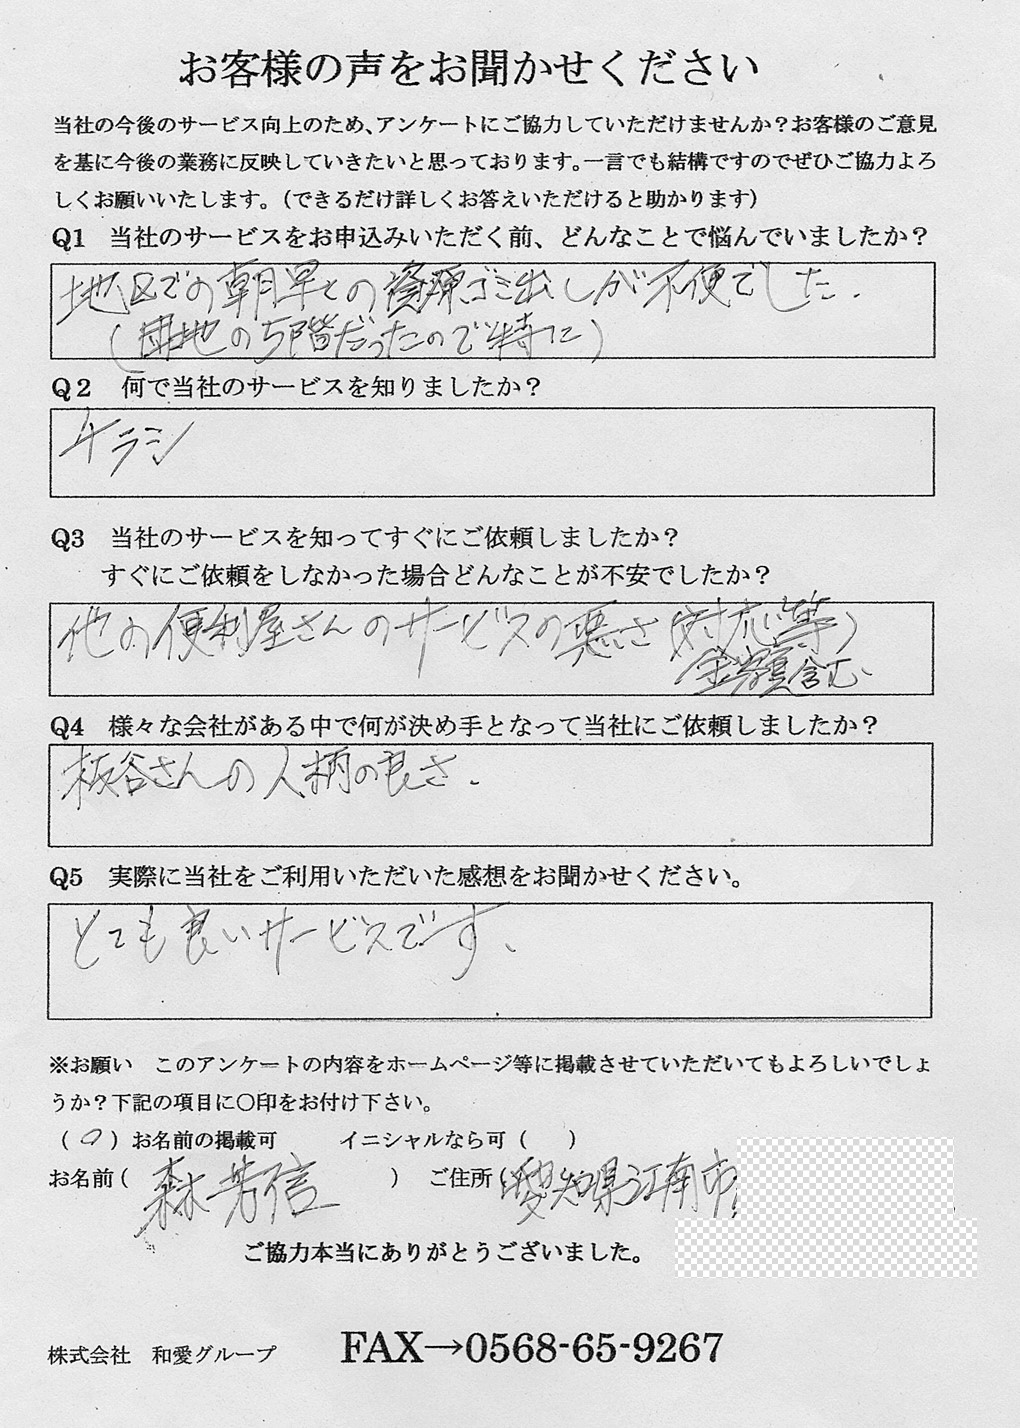 お客様の声をお聞かせください
当社の今後のサービス向上のため、アンケートにご協力していただけませんか？お客様のご意見
を基に今後の業務に反映していきたいと思っております。一言でも結構ですのでぜひご協力よろ
しくお願いいたします。（できるだけ詳しくお答えいただけると助かります）
Q1　当社のサービスをお申込みいただく前、どんなことで悩んでいましたか？
地区での朝早との資源ゴミ出しが不便でした.
（団地の5階だったので特に）
Q２　何で当社のサービスを知りましたか？
チラシ
Q3　当社のサービスを知ってすぐにご依頼しましたか？
すぐにご依頼をしなかった場合どんなことが不安でしたか？
他の便利屋さんのサービスの悪さ（対応等）
金額含む、
Q4　様々な会社がある中で何が決め手となって当社にご依頼しましたか？
板谷さんの人柄の良さ.
Q5　実際に当社をご利用いただいた感想をお聞かせください。
とても良いサービスです、
※お願い　このアンケートの内容をホームページ等に掲載させていただいてもよろしいでしょ
うか？下記の項目に〇印をお付け下さい。
（○）お名前の掲載可　　イニシャルなら可（　）
お名前（森 芳信）　ご住所（愛知県江南市
ご協力本当にありがとうございました。
株式会社　和愛グループ　FAX→0568-65-9267